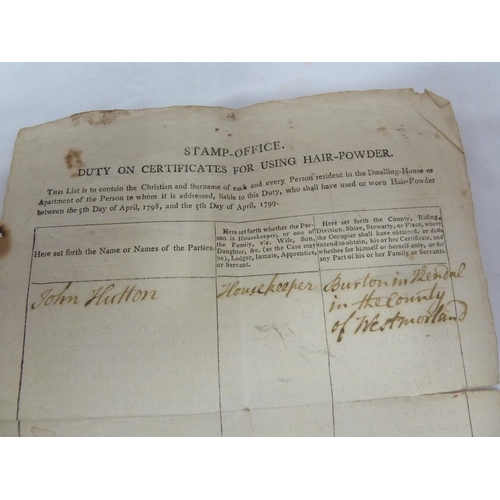 STAMP-OFFICE.
DUTY ON CERTIFICATES FOR USING HAIR-POWDER.
THIS List is to contain the Christian and Surname of each and every Person resident in the Dwelling-House or
Apartment of the Person to whom it is addressed, liable to this Duty, who shall have used or worn Hair-Powder
between the 5th Day of April, 1798, and the 5th Day of April, 1799.
Here set forth the Name or Names of the Parties.
Here set forth whether the Per-
son is Housekeeper, or one of
the Family, viz. Wife, Son,
Daughter, &c. (as the Case may
be), Lodger, Inmate, Apprentice,
or Servant.
Here set forth the County, Riding,
Division, Shire, Stewarty, or Place, where
the Occupier shall have obtained, or doth
intend to obtain, his or her Certificate, and
whether for himself or herself only, or for
any Part of his or her Family or Servants.
John Hutton
Housekeeper
Burton in Kendal
in the County
of Westmorland